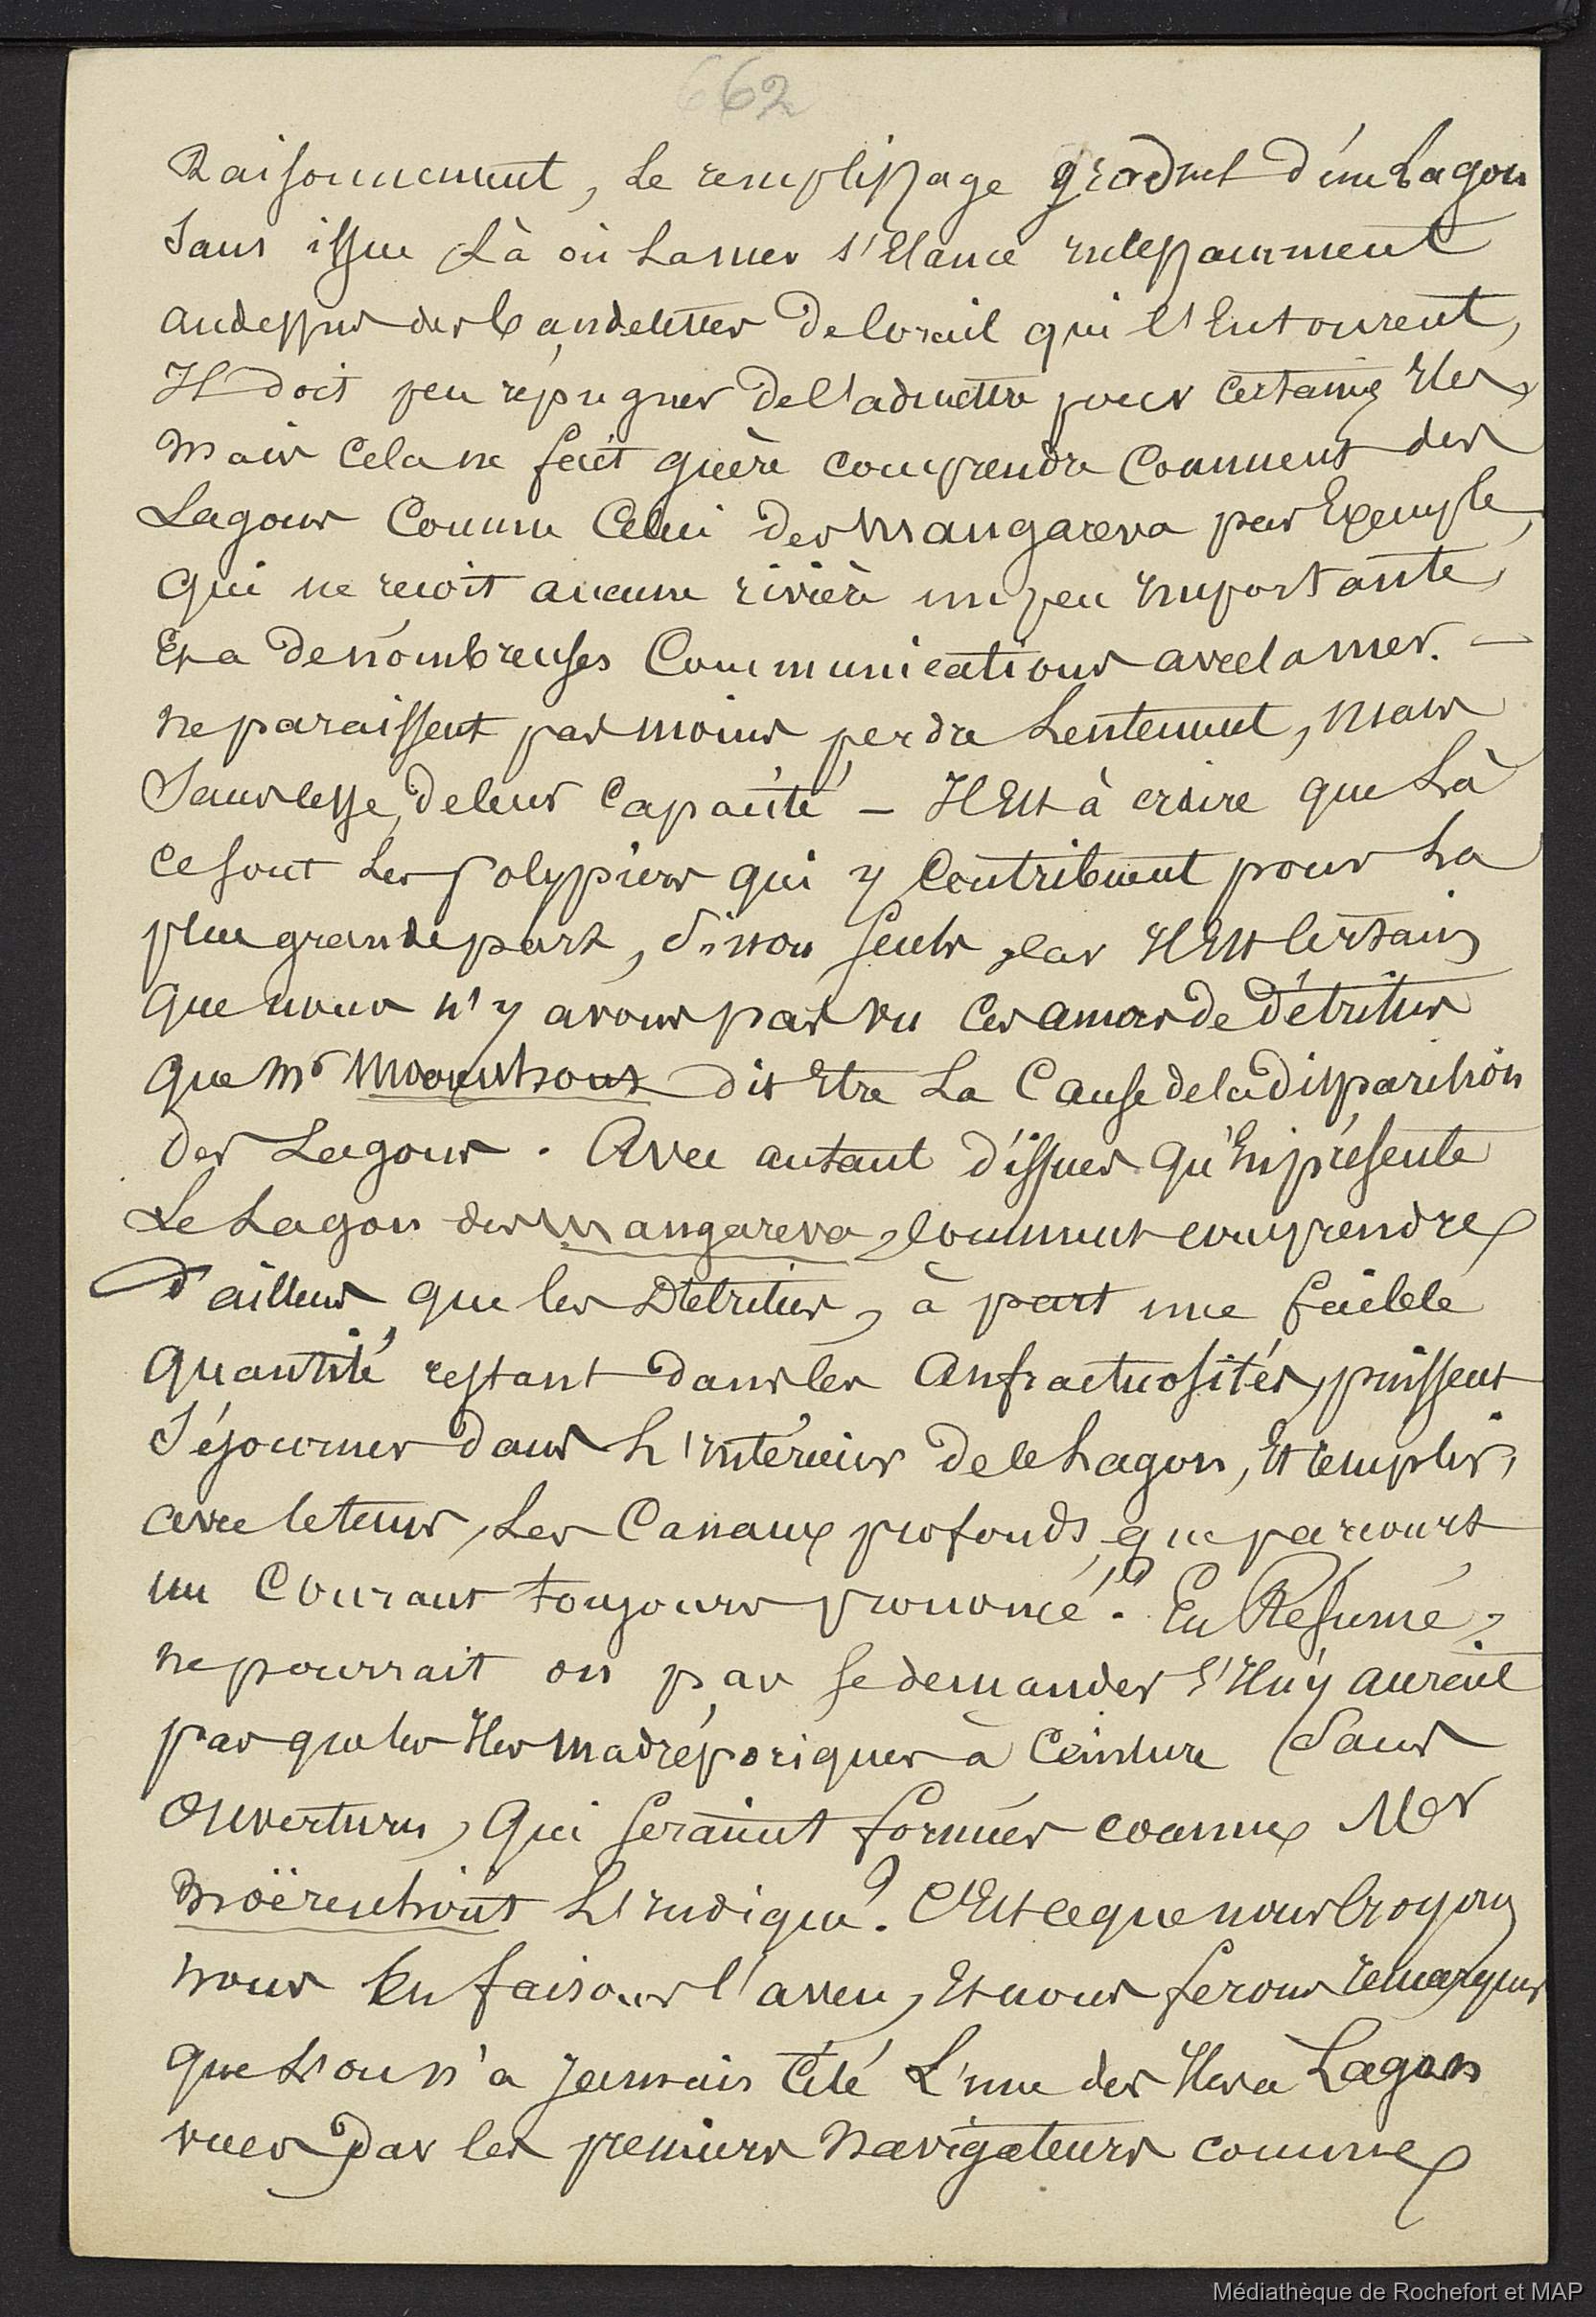 662
Raisonnement, Le remplissage graduel d'un Lagon
Sans issue Là où La mer s'Elance incessamment
audessus des bandelettes de Corail qui l'Entourent,
Il doit peu répugner de l'admettre pour Certaines Iles,
Mais Cela ne fait guère comprendre Comment des
Lagons Comme Celui des Mangareva par Exemple,
qui ne reçoit aucune rivière un peu Importante,
Et a de nombreuses Communications avec la mer. —
ne paraissent pas moins perdre Lentement, mais
Sans cesse, de leur Capacité — Il Est à croire que Là
ce sont Les polypiers qui y Contribuent pour La
plus grande part, Sinon Seuls, Car Il Est Certain
que nous n'y avons pas vu Ces amas de Détritus
que Mr Moerenhout dit Etre La Cause de la disparition
des Lagons. Avec autant d'issues qu'En présente
Le Lagon des Mangareva, Comment comprendre
d'ailleurs que les Détritus, à part une faible
Quantité restant dans les Anfractuosités, puissent
Séjourner dans L'Intérieur de ce Lagon, Et remplir,
avec le tems, Les Canaux profonds que parcourt
un Courant toujours prononcé? En Résumé,
ne pourrait on pas se demander s'Il n'y aurait
pas que les Iles Madréporiques à Ceinture Sans
Ouvertures, Qui seraient formées comme Mer
Moërenhout L'Indique? C'Est ce que nous Croyons
nous En faisons l'aveu, Et nous ferons remarquer
que L'on n'a jamais Cité L'une des Iles à Lagon
vues par les premiers Navigateurs comme
Médiathèque de Rochefort et MAP